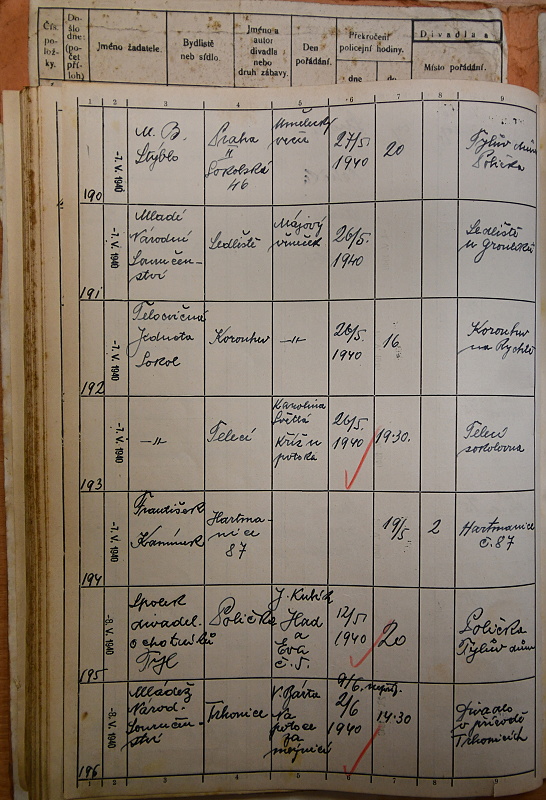 Čís. po- lož- ky.
Do- šlo dne: (po- čet pří- loh)
Jméno žadatele.
Bydliště neb sídlo.
Jméno a autor divadla nebo druh zábavy.
Den pořádání.
Překročení policejní hodiny.
dne
do
Divadla a
Místo pořádání.
1 2 3 4 5 6 7 8 9
190
-7. V. 1940
M. B.
Štýblo
Praha
II
Sokolská
46
Umělecký
večer
27/5.
1940
20
Tylův dům
Polička
191
-7. V. 1940
Mladí
Národní
Souručen-
ství
Sedliště
Májový
věneček
26/5.
1940
Sedliště
192
-7. V. 1940
Tělocvičná
Jednota
Sokol
Korouhev
-"-
26/5.
1940
16.
Korouhev
na Rychtě
193
-7. V. 1940
-"-
Telecí
Karolina
Světlá
Kříž u
potoka
26/5.
1940
19.30.
Telecí
sokolovna
194
-7. V. 1940
František
Kamínek
Hartma-
nice
87
19/5
2
Hartmanice
č. 87
195
-8. V. 1940
Spolek
divadel.
ochotníků
Tyl
Polička
J. Kubík
Had
a
Eva
č. 5.
12/5
1940
20
Polička
Tylův dům
196
-8. V. 1940
Mládež
Národ.
Souručen-
ství
Trhonice
V. Bárta
Na
potoce
za
9/6.
2/6
1940
14.30
Divadlo
v přírodě
Trhonicích
1 2 3 4 5 6 7 8 9